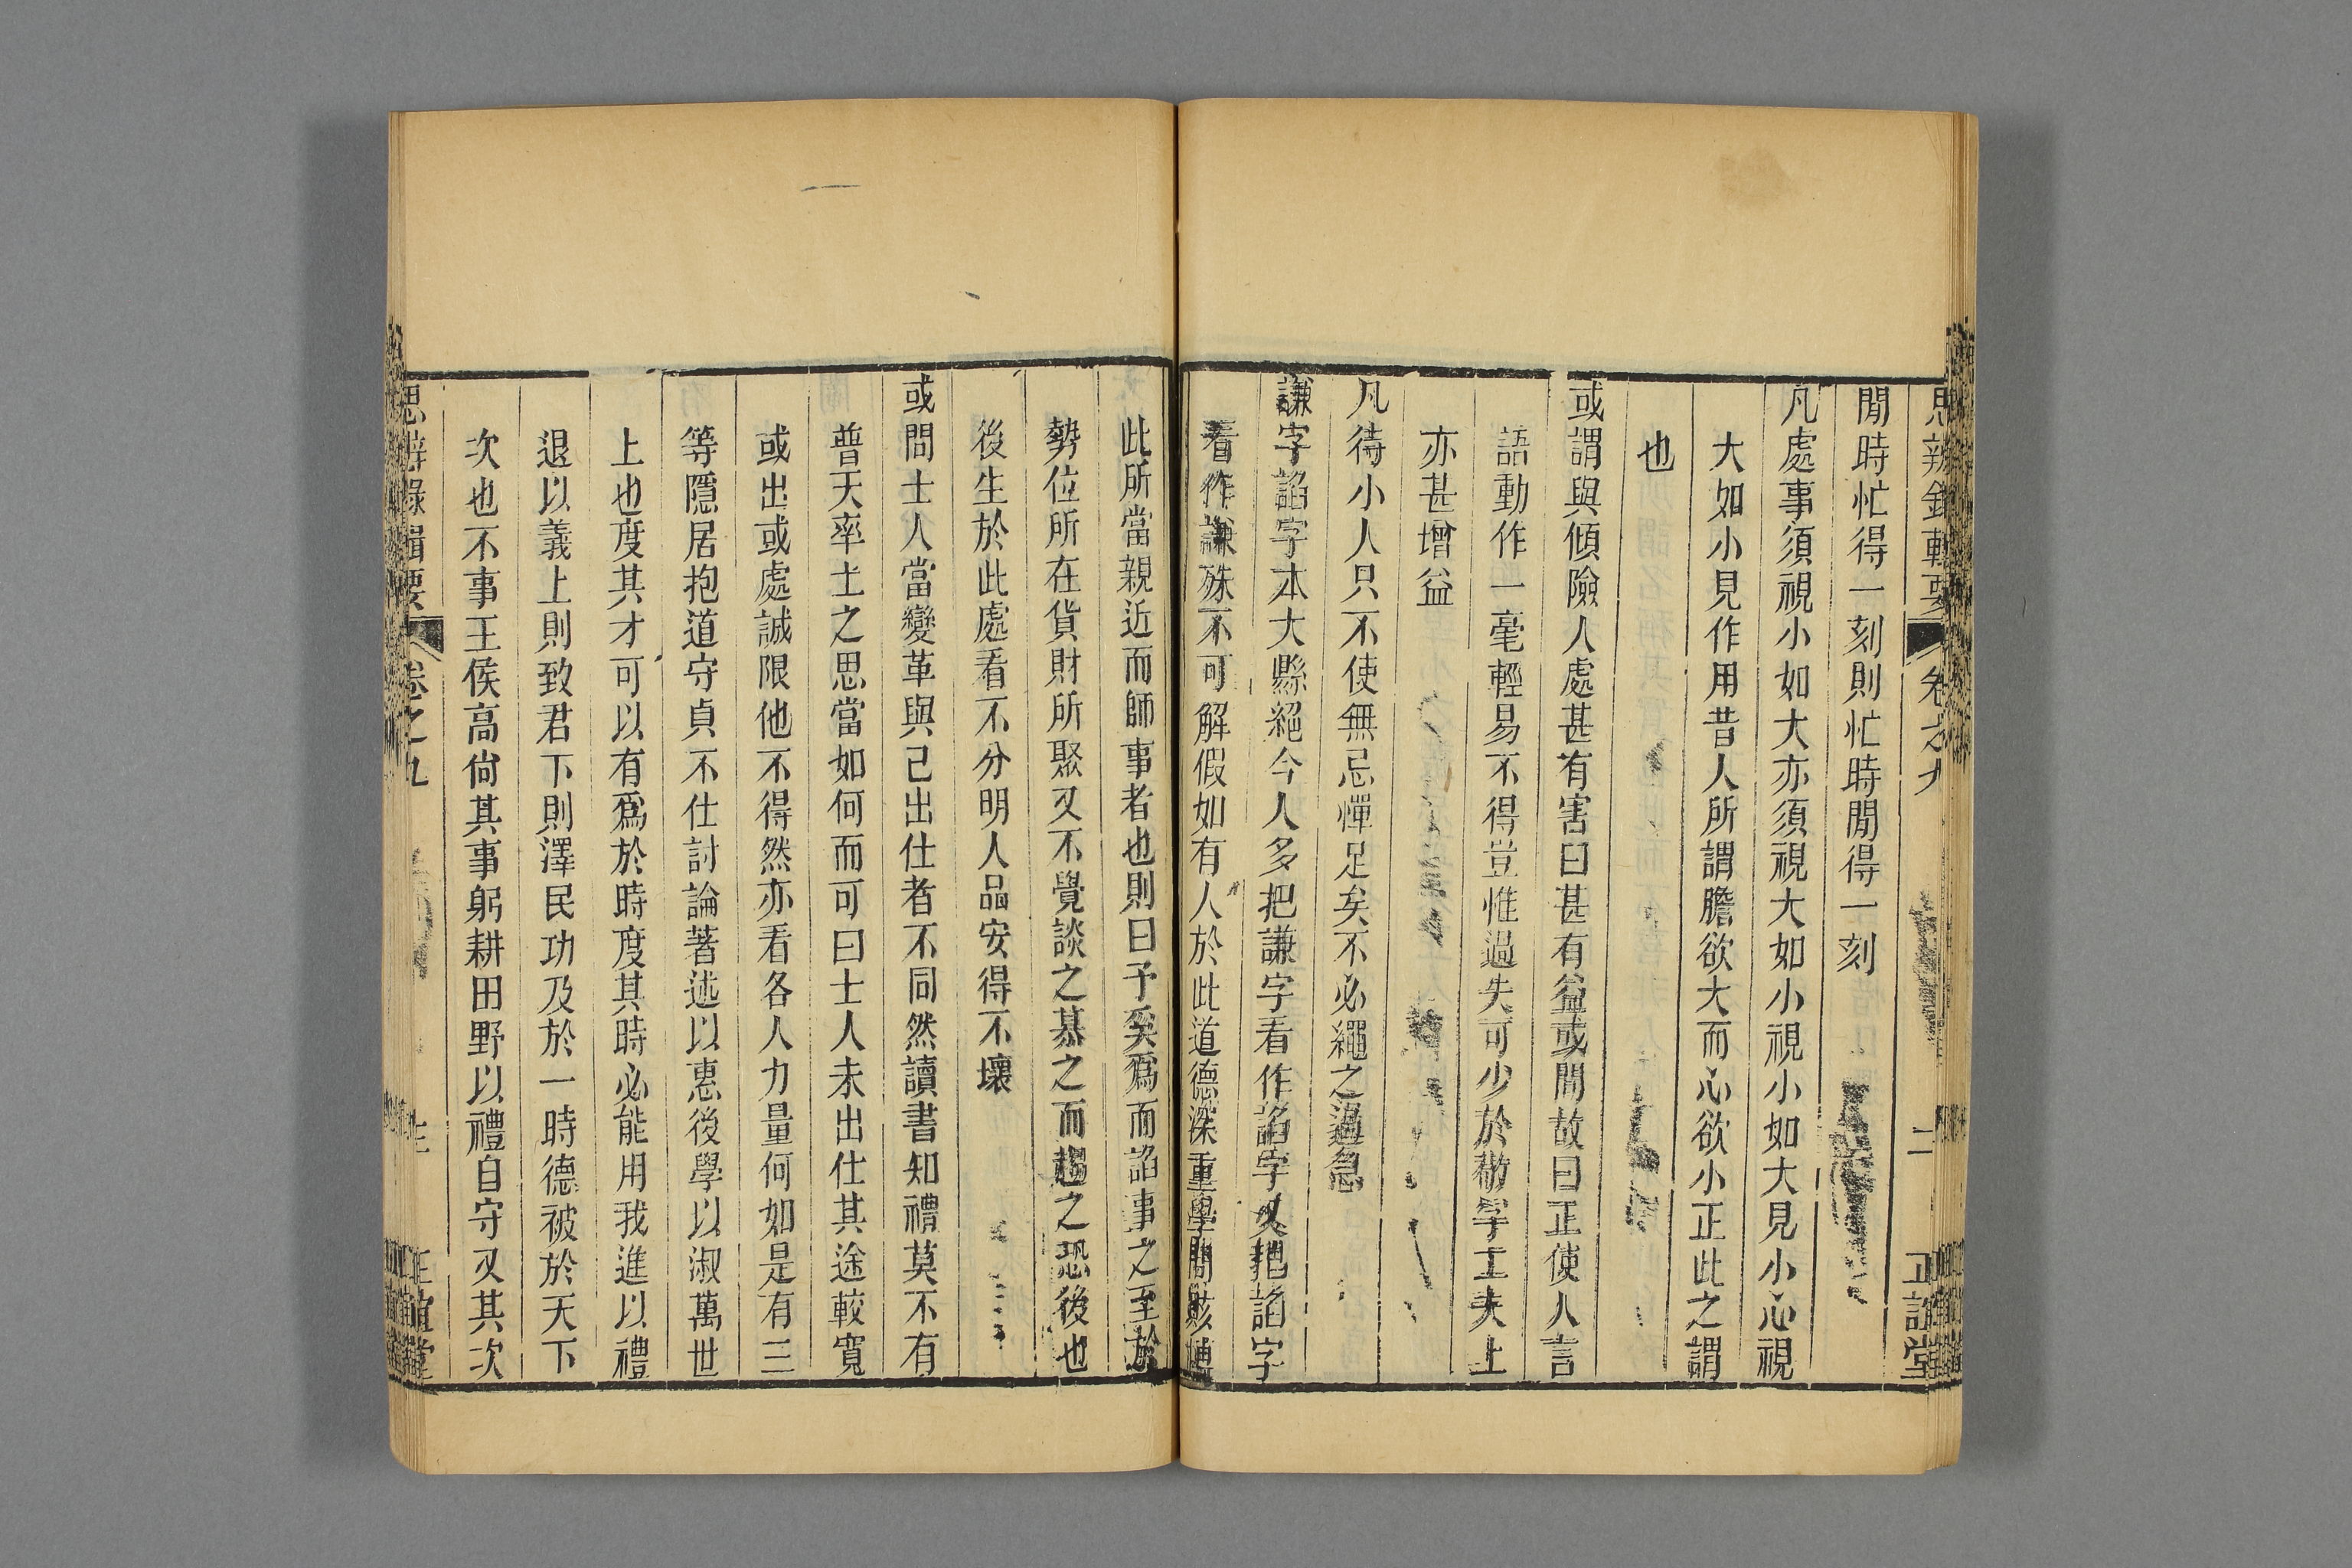 思辨錄輯要 卷之九 二 正誼堂
閒時忙得一刻則忙時閒得一刻
凡處事須視小如大亦須視大如小視小如大見小心視
大如小見作用昔人所謂膽欲大而心欲小正此之謂
也
或謂與傾險人處甚有害曰甚有益或問故曰正使人言
語動作一毫輕易不得豈惟過失可少於敬字工夫上
亦甚增益
凡待小人只不使無忌憚足矣不必繩之過急
謙字諂字本大縣絕今人多把謙字看作諂字又把諂字
看作謙殊不可解假如有人於此道德深重學問該博
此所當親近而師事者也則曰予奚爲而諂事之至於
勢位所在貨財所聚又不覺談之慕之而趨之恐後也
後生於此處看不分明人品安得不壞
或問士人當變革與己出仕者不同然讀書知禮莫不有
普天率土之思當如何而可曰士人未出仕其途較寬
或出或處誠限他不得然亦看各人力量何如是有三
等隱居抱道守貞不仕討論著述以惠後學以淑萬世
上也度其才可以有爲於時度其時必能用我進以禮
退以義上則致君下則澤民功及於一時德被於天下
次也不事王侯高尙其事躬耕田野以禮自守又其次
思辨錄輯要 卷之九 正誼堂